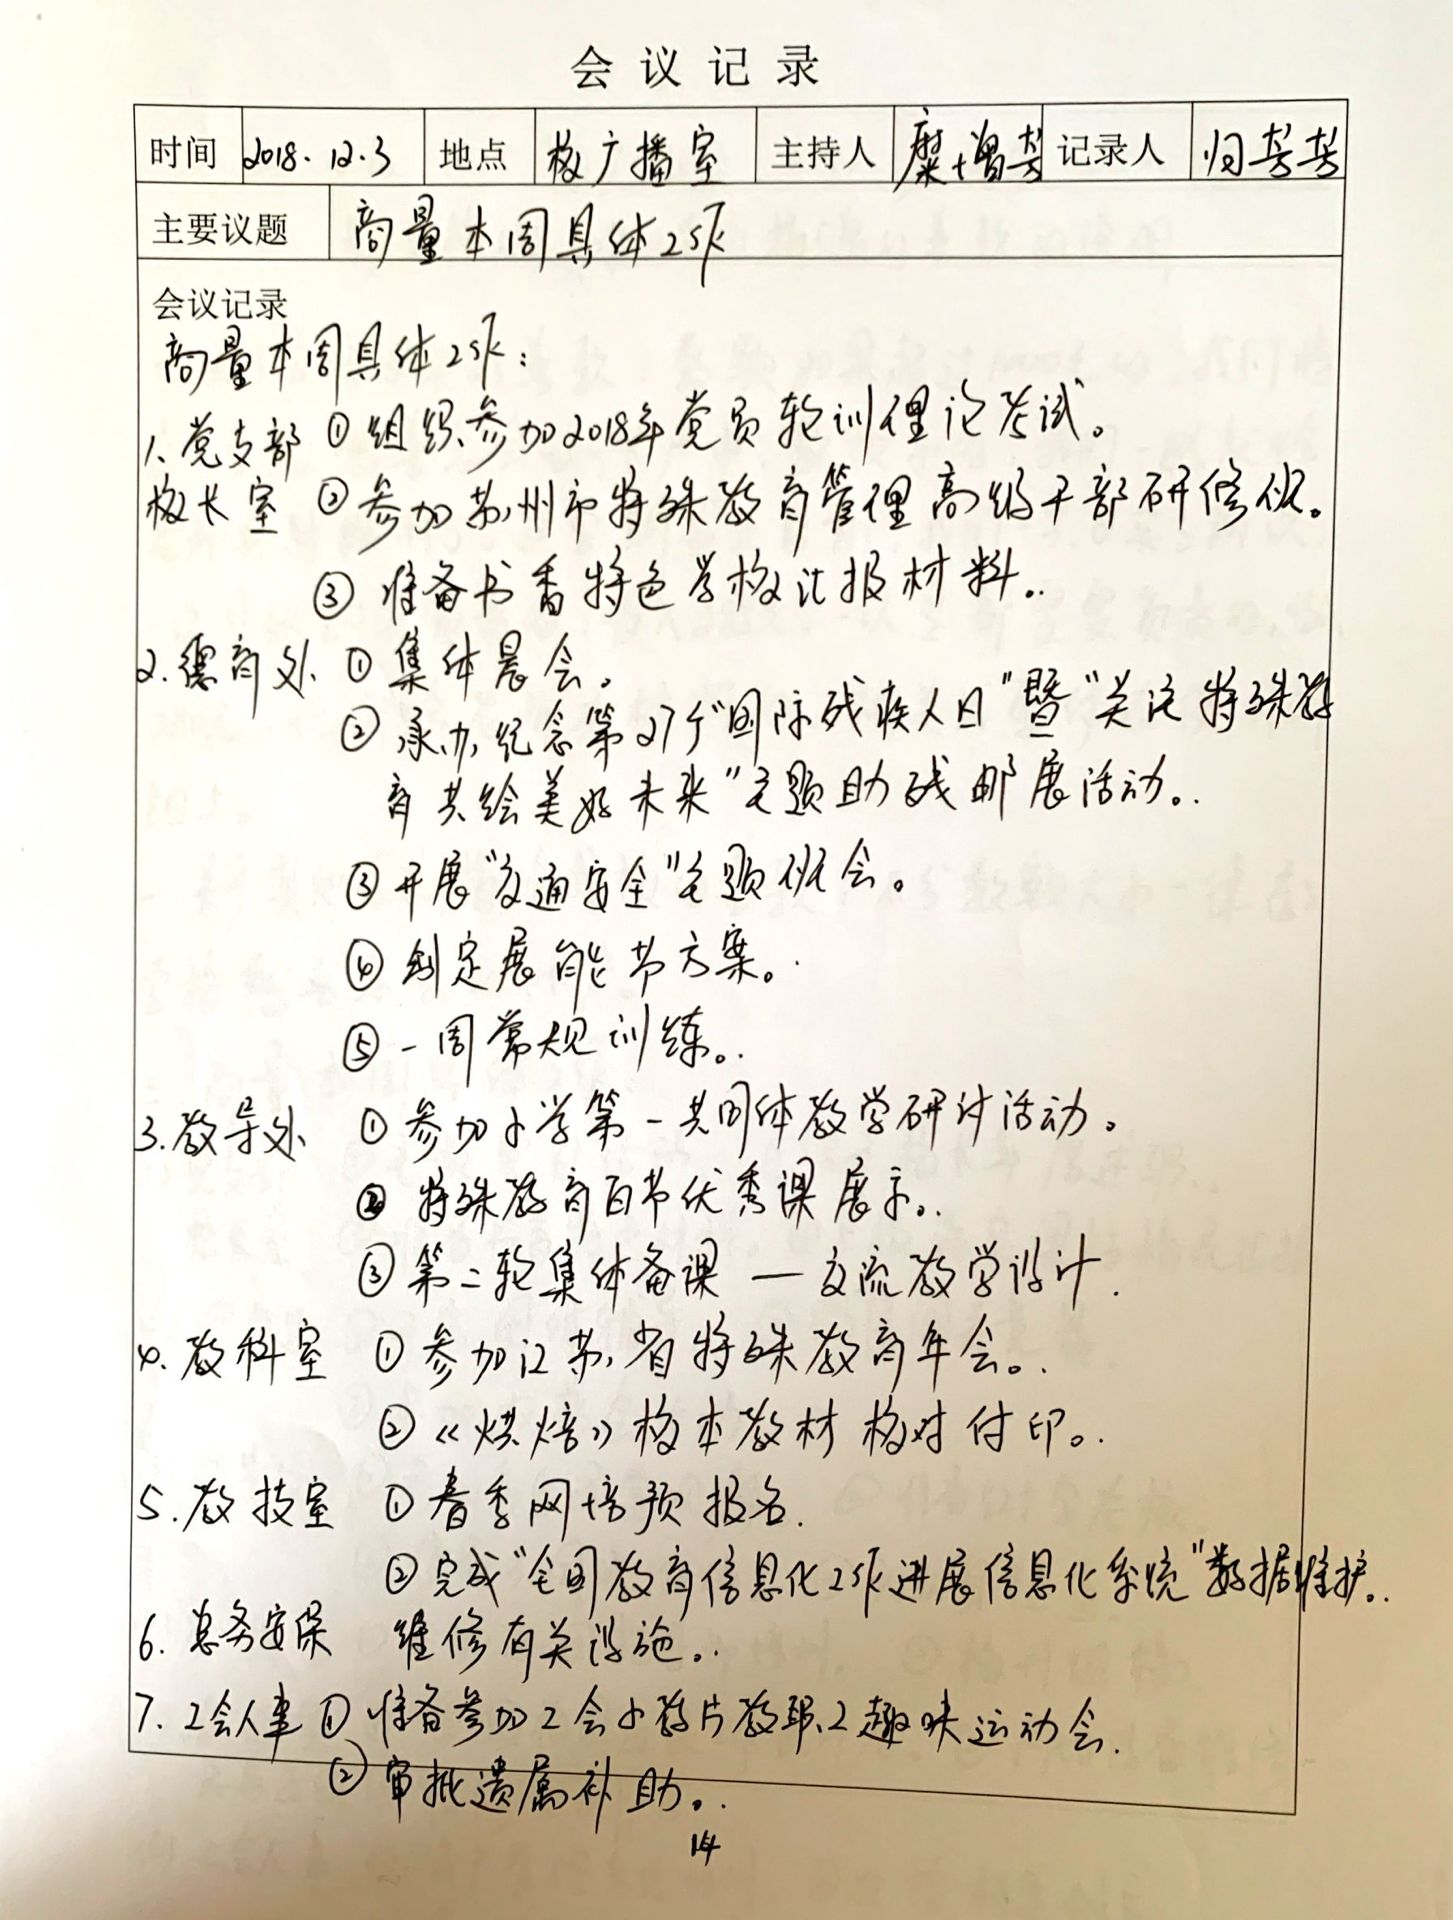 会议记录
时间 2018.12.3 地点 校广播室 主持人 糜增芳 记录人 归芳芳
主要议题 商量本周具体工作
会议记录
商量本周具体工作：
1、党支部 ①组织参加2018年党员轮训理论考试。
校长室 ②参加苏州市特殊教育管理高级干部研修班。
③准备书香特色学校汇报材料。
2.德育处 ①集体晨会。
②承办纪念第27个"国际残疾人日"暨"关注特殊教
育共绘美好未来"主题助残邮展活动。
③开展"交通安全"主题班会。
④制定展能节方案。
⑤一周常规训练。
3.教导处 ①参加小学第一共同体教学研讨活动。
②特殊教育百节优秀课展示。
③第二轮集体备课—交流教学设计.
4.教科室 ①参加江苏省特殊教育年会。
②《烘焙》校本教材校对付印。
5.教技室 ①春季网培预报名.
②完成"全国教育信息化工作进展信息化系统"数据维护。
6.总务安保 维修有关设施。
7.工会人事 ①准备参加工会小教片教职工趣味运动会.
②审批遗属补助。
14